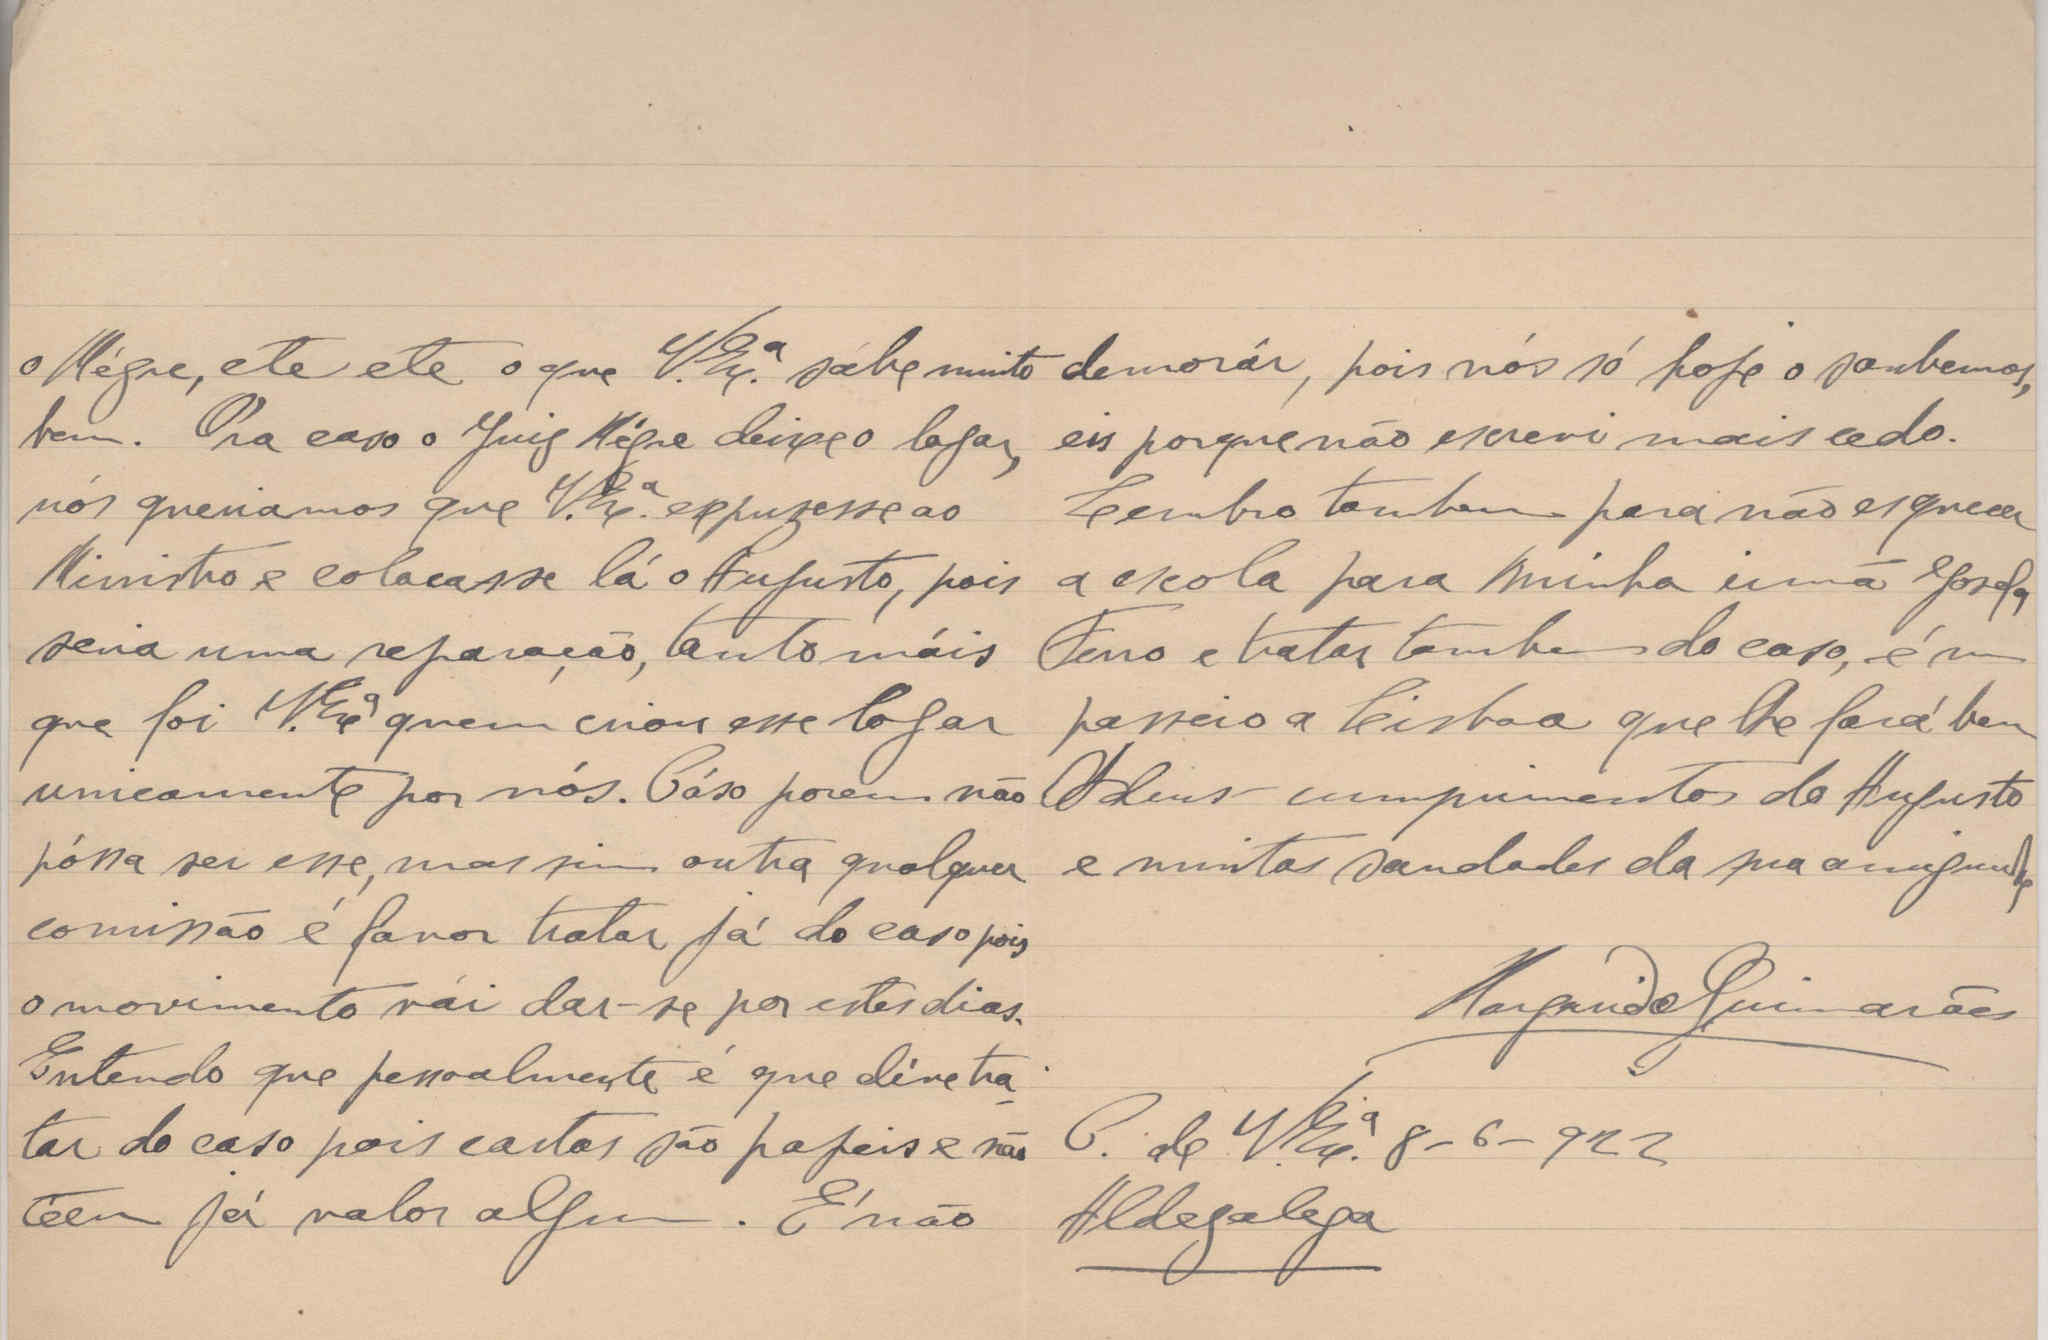 o Mégre, etc etc o que V. Ex.ª sábe muito
bem. Ora caso o Juiz Mégre deixe o logar,
nós queriamos que V. Ex.ª expuzesse ao
Ministro e colocasse lá o Augusto, pois
seria uma reparação, tanto máis
que foi V. Exª quem criou esse logar
unicamente por nós. Cáso porem não
póssa ser esse, mas sim outra qualquer
comissão é favor tratar já do caso pois
o movimento vái dar-se por estes dias.
Entendo que pessoalmente é que déve tra-
tar do caso pois cartas são papeis e não
têem já valor algum. E' não
demorár, pois nós só hoje o soubemos,
eis porque não escrevi mais cedo.
Lembro tambem para não esquecer
a escola para minha irmã Josefa
Ferro e tratar tambem do caso, é um
passeio a Lisboa que lhe fará bem
Adeus cumprimentos do Augusto
e muitas saudades da sua amigunha
Margarida Guimarães
C. de V. Ex.ª 8-6-922
Aldegalega